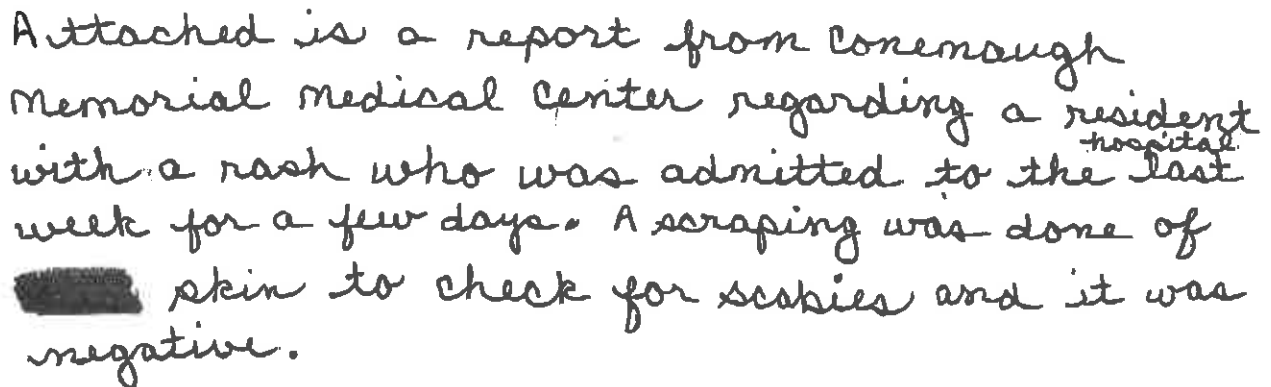 Attached is a report from Conemaugh
Memorial Medical Center regarding a resident
with a rash who was admitted to the hospital last
week for a few days. A scraping was done of
skin to check for scabies and it was
negative.